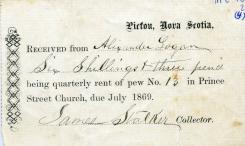 Pictou, Nova Scotia.
RECEIVED from Alexander Logan
Six Shillings & three pence
being quarterly rent of pew No. 13 in Prince
Street Church, due July 1869.
James Stalker Collector.